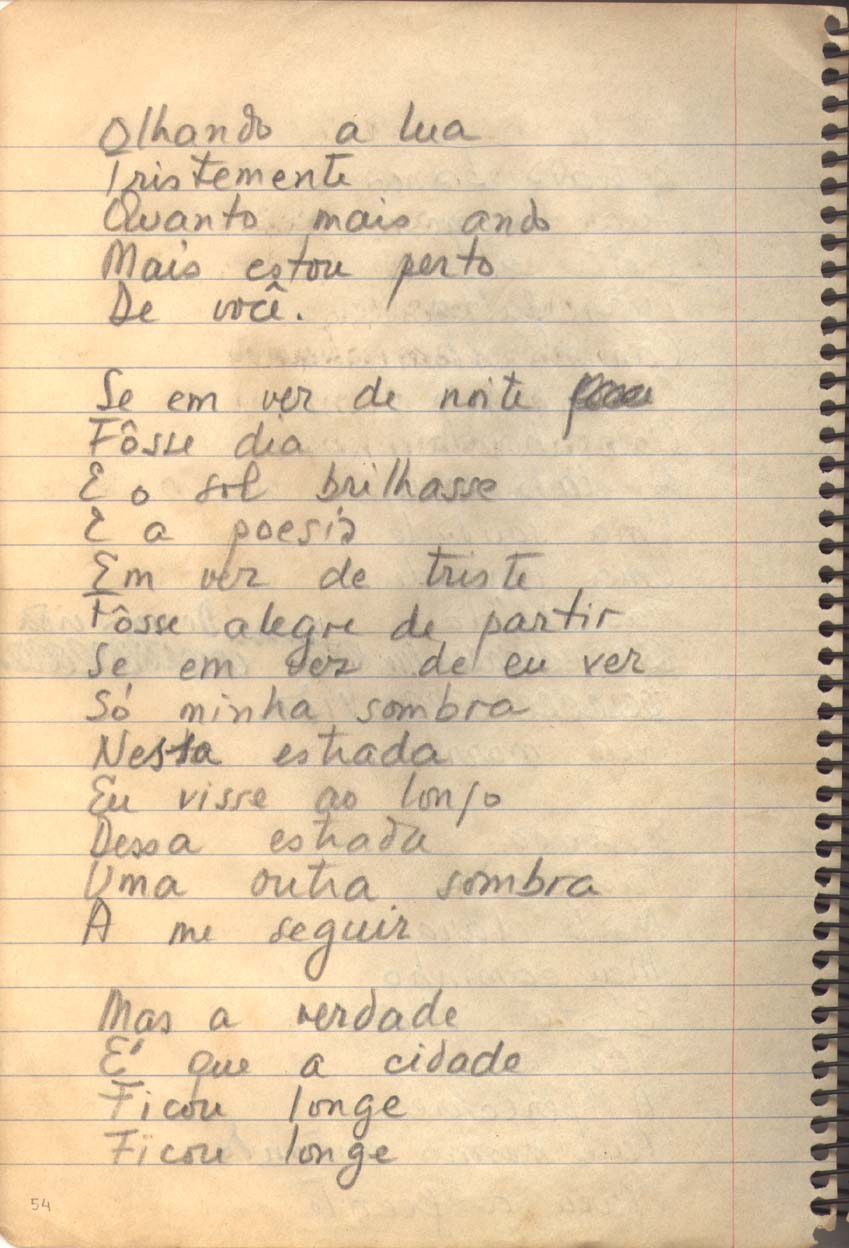 Olhando a lua
Tristemente
Quanto mais ando
Mais estou perto
De você.
Se em ver de noite
Fôsse dia
E o sol brilhasse
E a poesia
Em ver de triste
Fôsse alegre de partir
Se em vez de eu ver
Só minha sombra
Nessa estrada
Eu visse ao longo
Dessa estrada
Uma outra sombra
A me seguir
Mas a verdade
É que a cidade
Ficou longe
Ficou longe
54